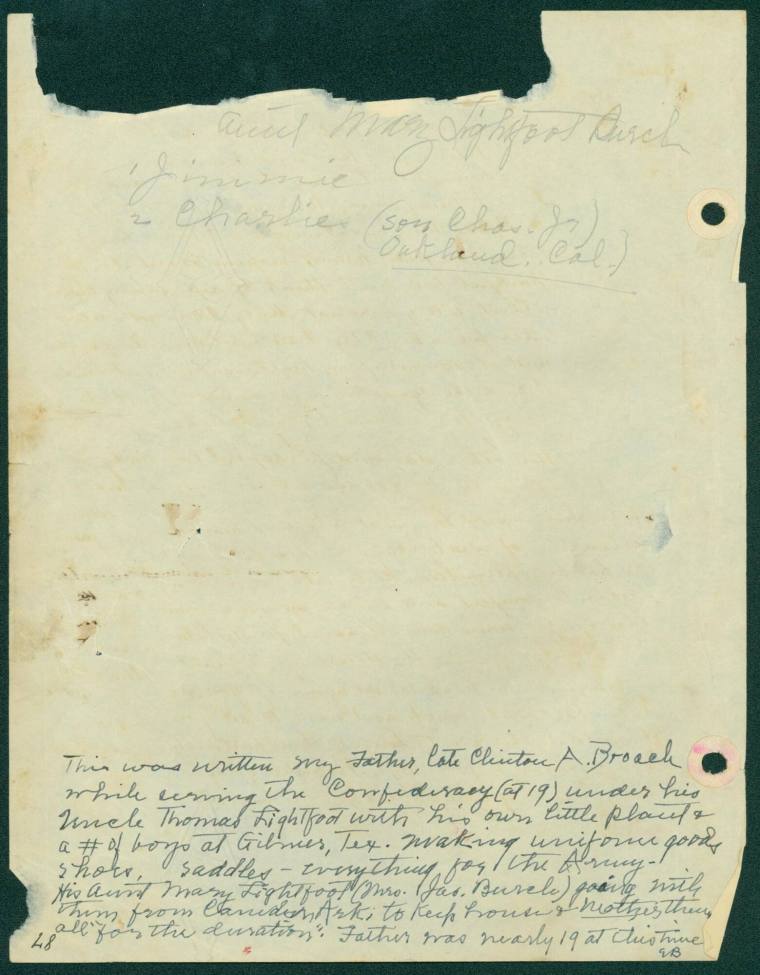 Aunt Mary Lightfoot Burch
1 Jimmie
2 Charlie (son Chas. Jr)
Oakland, Cal.)
This was written my Father, late Clinton A. Broach
while serving the Confederacy (at 19) under his
Uncle Thomas Lightfoot with his own little plant &
a # of boys at Gilmer, Tex. making uniform goods
shoes, saddles - everything for the Army -
His Aunt Mary Lightfoot (Mrs. Jas. Burch) going with
them from Camden, Ark. to keep house & Mother them
all "for the duration". Father was nearly 19 at this time
48
EB